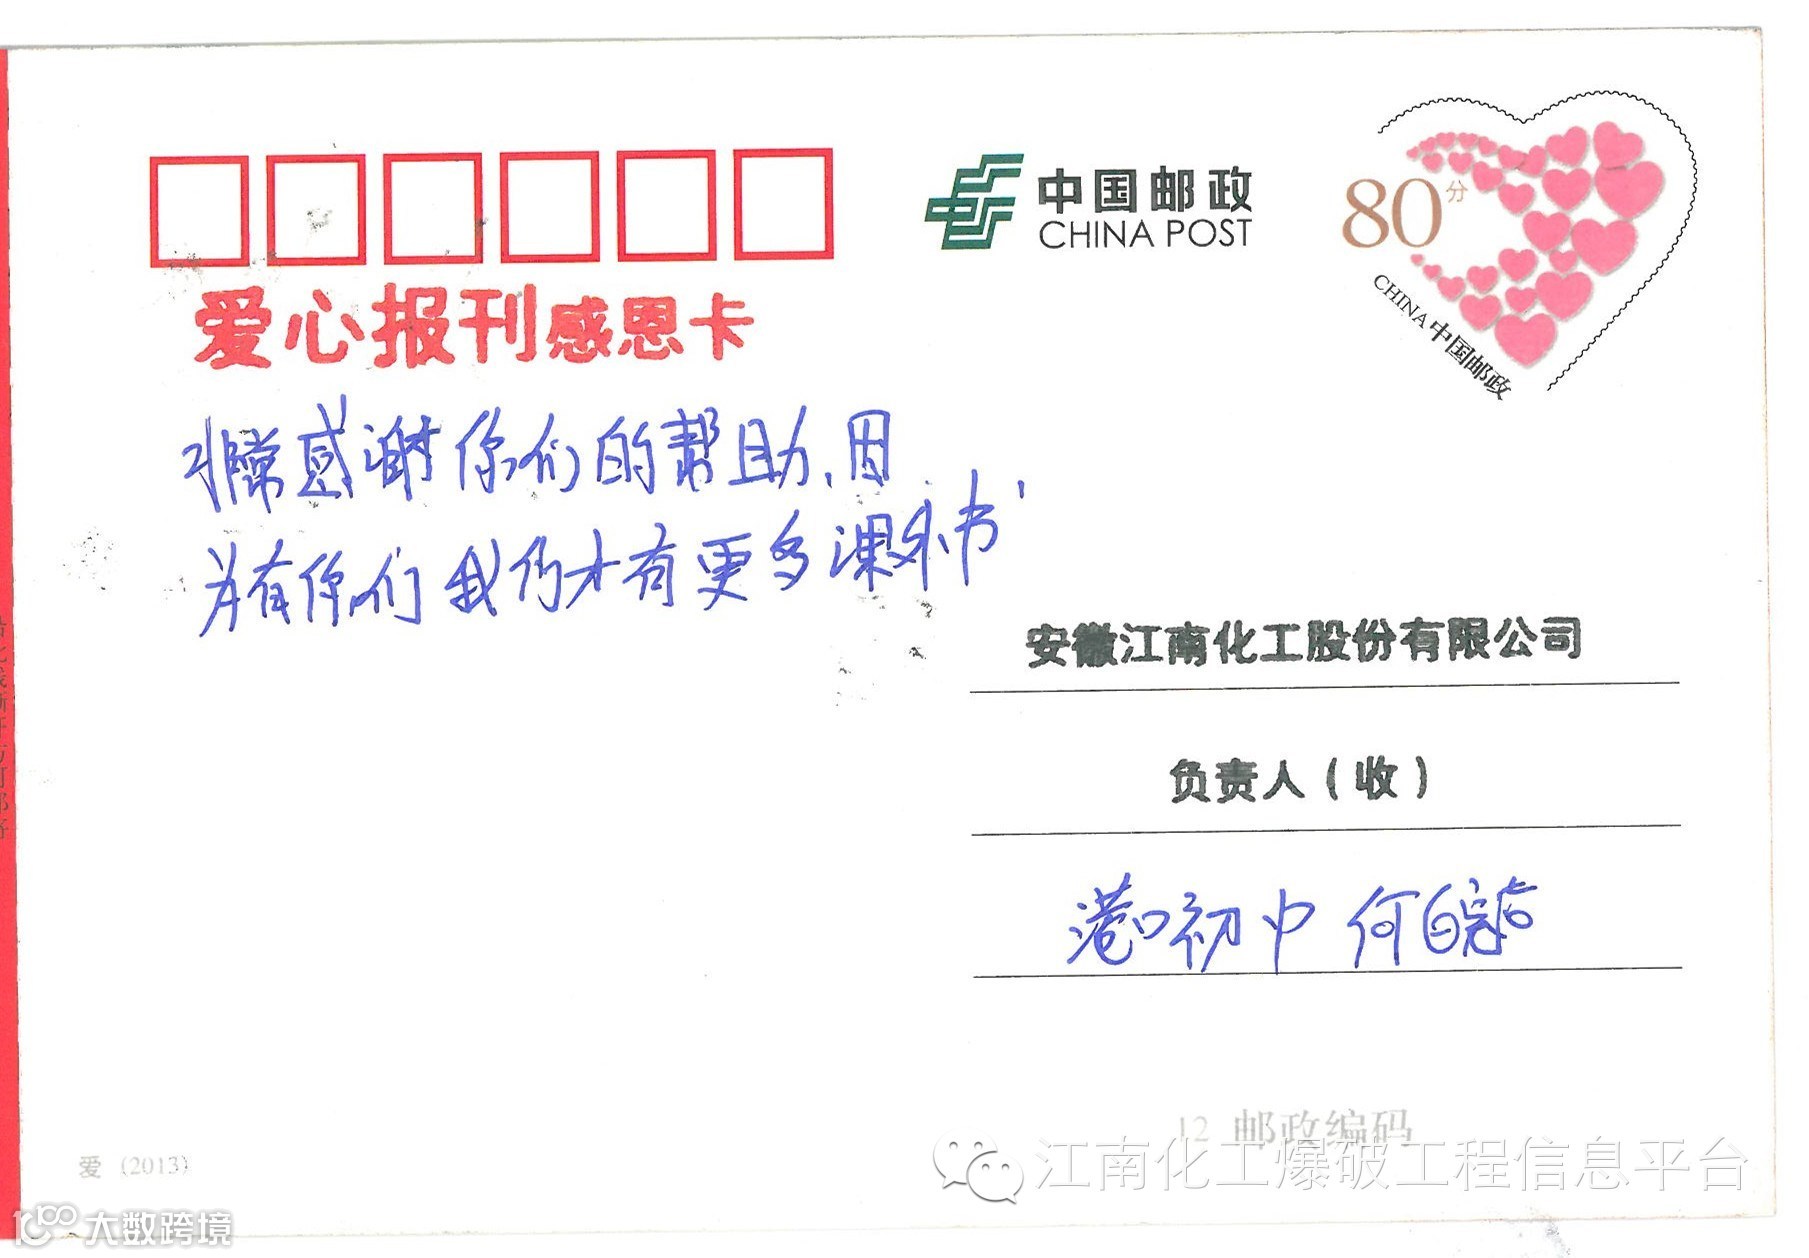 中国邮政
CHINA POST
80分
CHINA 中国邮政
爱心报刊感恩卡
非常感谢你们的帮助,因
为有你们我们才有更多课外书
安徽江南化工股份有限公司
负责人(收)
港口初中 何皖
12 邮政编码
爱 (2013)
江南化工爆破工程信息平台
大数跨境